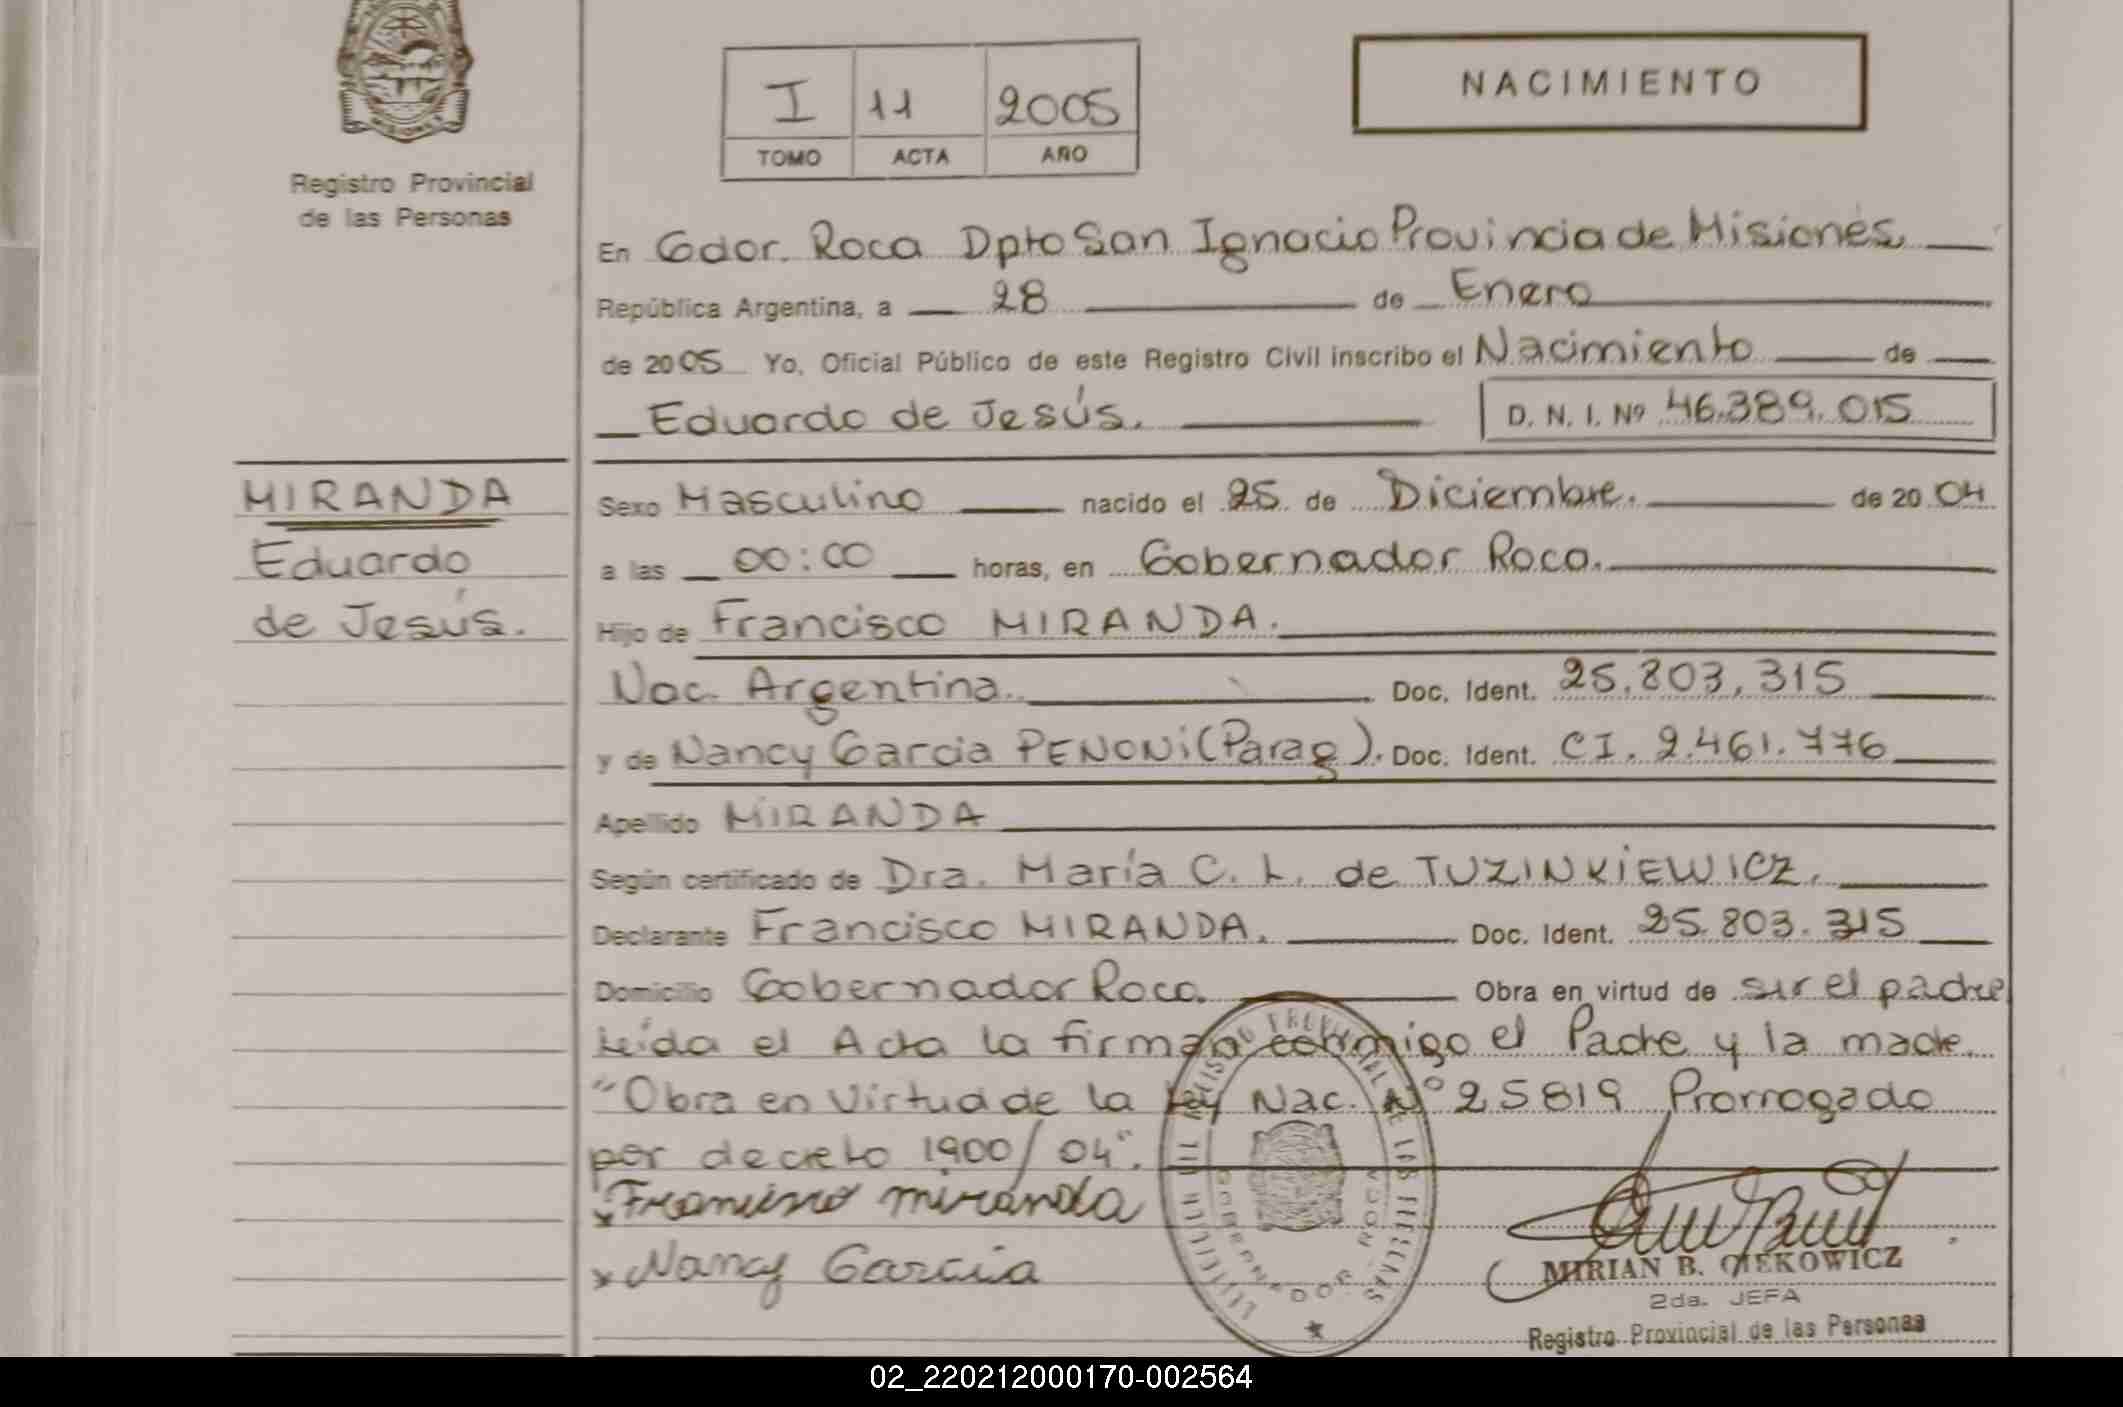 MISIONES
Registro Provincial
de las Personas
I 11 2005
TOMO ACTA AÑO
NACIMIENTO
En Gdor. Roca Dpto San Ignacio Provincia de Misiones
República Argentina, a 28 de Enero
de 2005 Yo, Oficial Público de este Registro Civil inscribo el Nacimiento de
Eduardo de Jesús.
D. N. I. Nº 46.389.015
MIRANDA
Eduardo
de Jesús.
Sexo Masculino nacido el 25 de Diciembre. de 2004
a las 00:00 horas, en Gobernador Roca.
Hijo de Francisco MIRANDA.
Nac. Argentina. Doc. Ident. 25.803.315
y de Nancy Garcia PENONI (Parag). Doc. Ident. CI. 2.461.776
Apellido MIRANDA
Según certificado de Dra. María C. L. de TUZINKIEWICZ.
Declarante Francisco MIRANDA. Doc. Ident. 25.803.315
Domicilio Gobernador Roca. Obra en virtud de ser el padre
leída el Acta la firman conmigo el Padre y la madre.
"Obra en Virtud de la Ley Nac. Nº 25819 Prorrogado
por decreto 1900/04".
x Francisco miranda
x Nancy Garcia
GOBERNADOR ROCA
MIRIAN B. CIEKOWICZ
2da. JEFA
Registro Provincial de las Personas
02_220212000170-002564